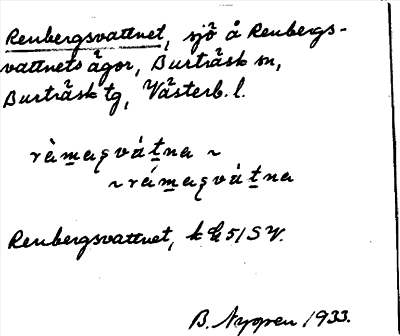 Renbergsvattnet, sjö å Renbergs-
vattnets ägor, Burträsk sn,
Burträsk tg, Västerb. l.
ràmasvátna ~
~ rámasvátna
Renbergsvattnet, k 51 SV.
B. Nyopen 1933.